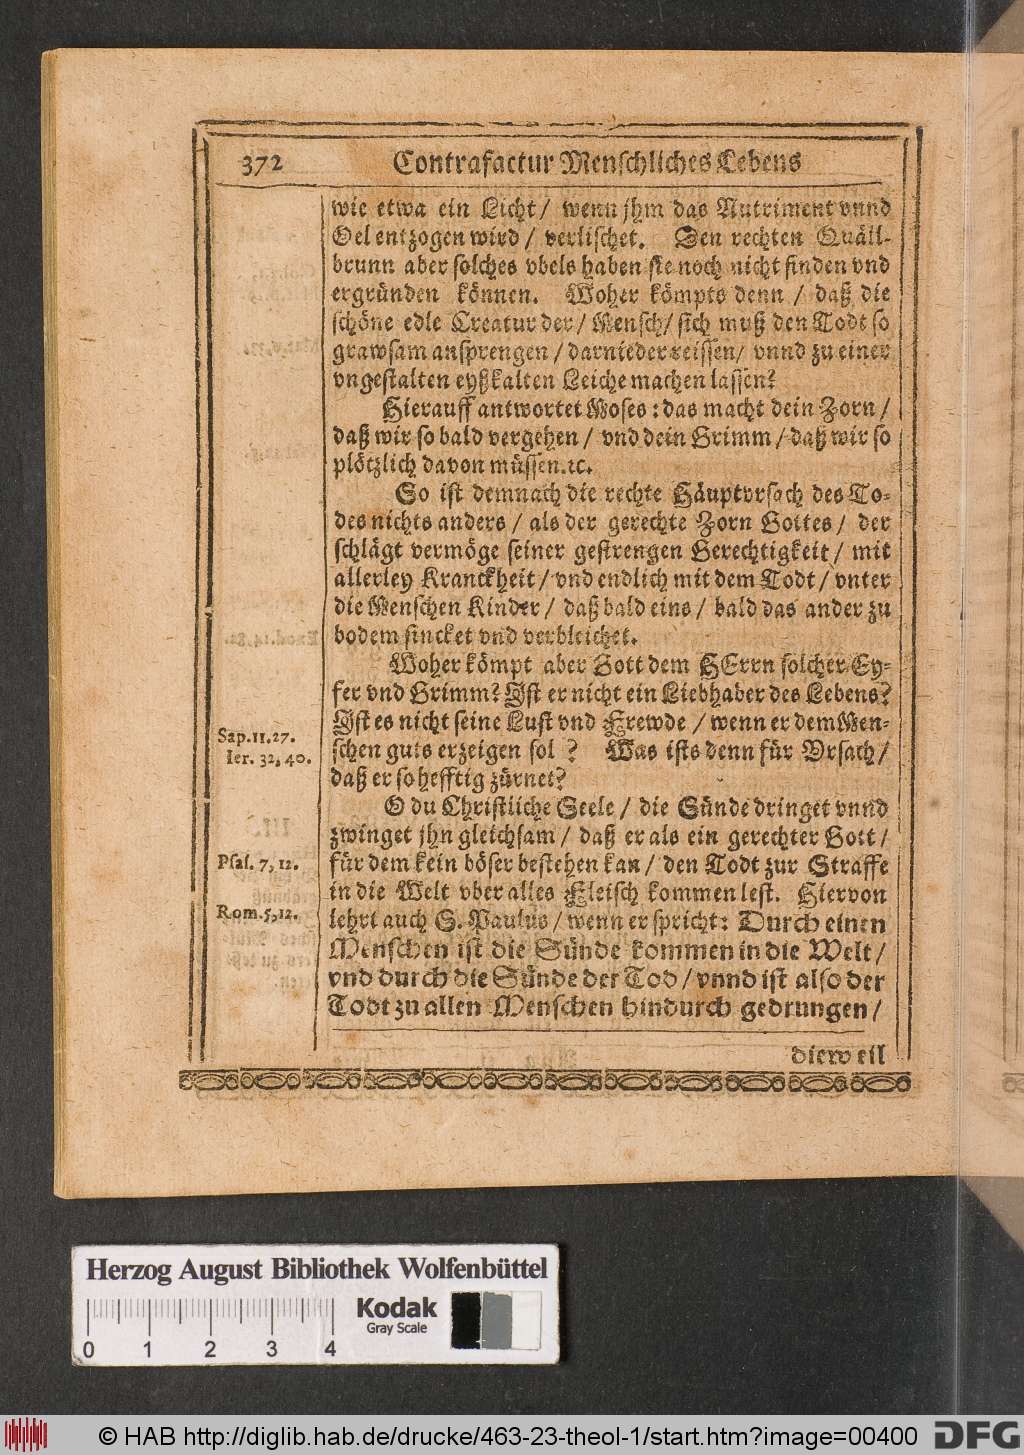 372 Contrafactur Menschliches Lebens
wie etwa ein Licht / wenn jhm das Nutriment vnnd
Oel entzogen wird / verlischet. Den rechten Quäll-
brunn aber solches vbels haben sie noch nicht finden vnd
ergründen können. Woher kömpts denn / daß die
schöne edle Creatur der / Mensch / sich muß den Todt so
grawsam ansprengen / darnieder reissen / vnnd zu einer
vngestalten eyßkalten Leiche machen lassen?
Hierauff antwortet Moses: das macht dein Zorn /
daß wir so bald vergehen / vnd dein Grimm / daß wir so
plötzlich davon müssen. ꝛc.
So ist demnach die rechte Häuptvrsach des To-
des nichts anders / als der gerechte Zorn Gottes / der
schlägt vermöge seiner gestrengen Gerechtigkeit / mit
allerley Kranckheit / vnd endlich mit dem Todt / vnter
die Menschen Kinder / daß bald eins / bald das ander zu
bodem sincket vnd verbleichet.
Woher kömpt aber Gott dem HErrn solcher Ey-
fer vnd Grimm? Jst er nicht ein Liebhaber des Lebens?
Jst es nicht seine Lust vnd Frewde / wenn er dem Men-
Sap. 11. 27.
schen guts erzeigen sol? Was ists denn für Vrsach /
Ier. 32, 40.
daß er so hefftig zürnet?
O du Christliche Seele / die Sünde dringet vnnd
zwinget jhn gleichsam / daß er als ein gerechter Gott /
Psal. 7, 12.
für dem kein böser bestehen kan / den Todt zur Straffe
in die Welt vber alles Fleisch kommen lest. Hiervon
Rom. 5, 12.
lehrt auch S. Paulus / wenn er spricht: Durch einen
Menschen ist die Sünde kommen in die Welt /
vnd durch die Sünde der Tod / vnnd ist also der
Todt zu allen Menschen hindurch gedrungen /
dieweil
Herzog August Bibliothek Wolfenbüttel
0 1 2 3 4
Kodak
Gray Scale
© HAB http://diglib.hab.de/drucke/463-23-theol-1/start.htm?image=00400
DFG